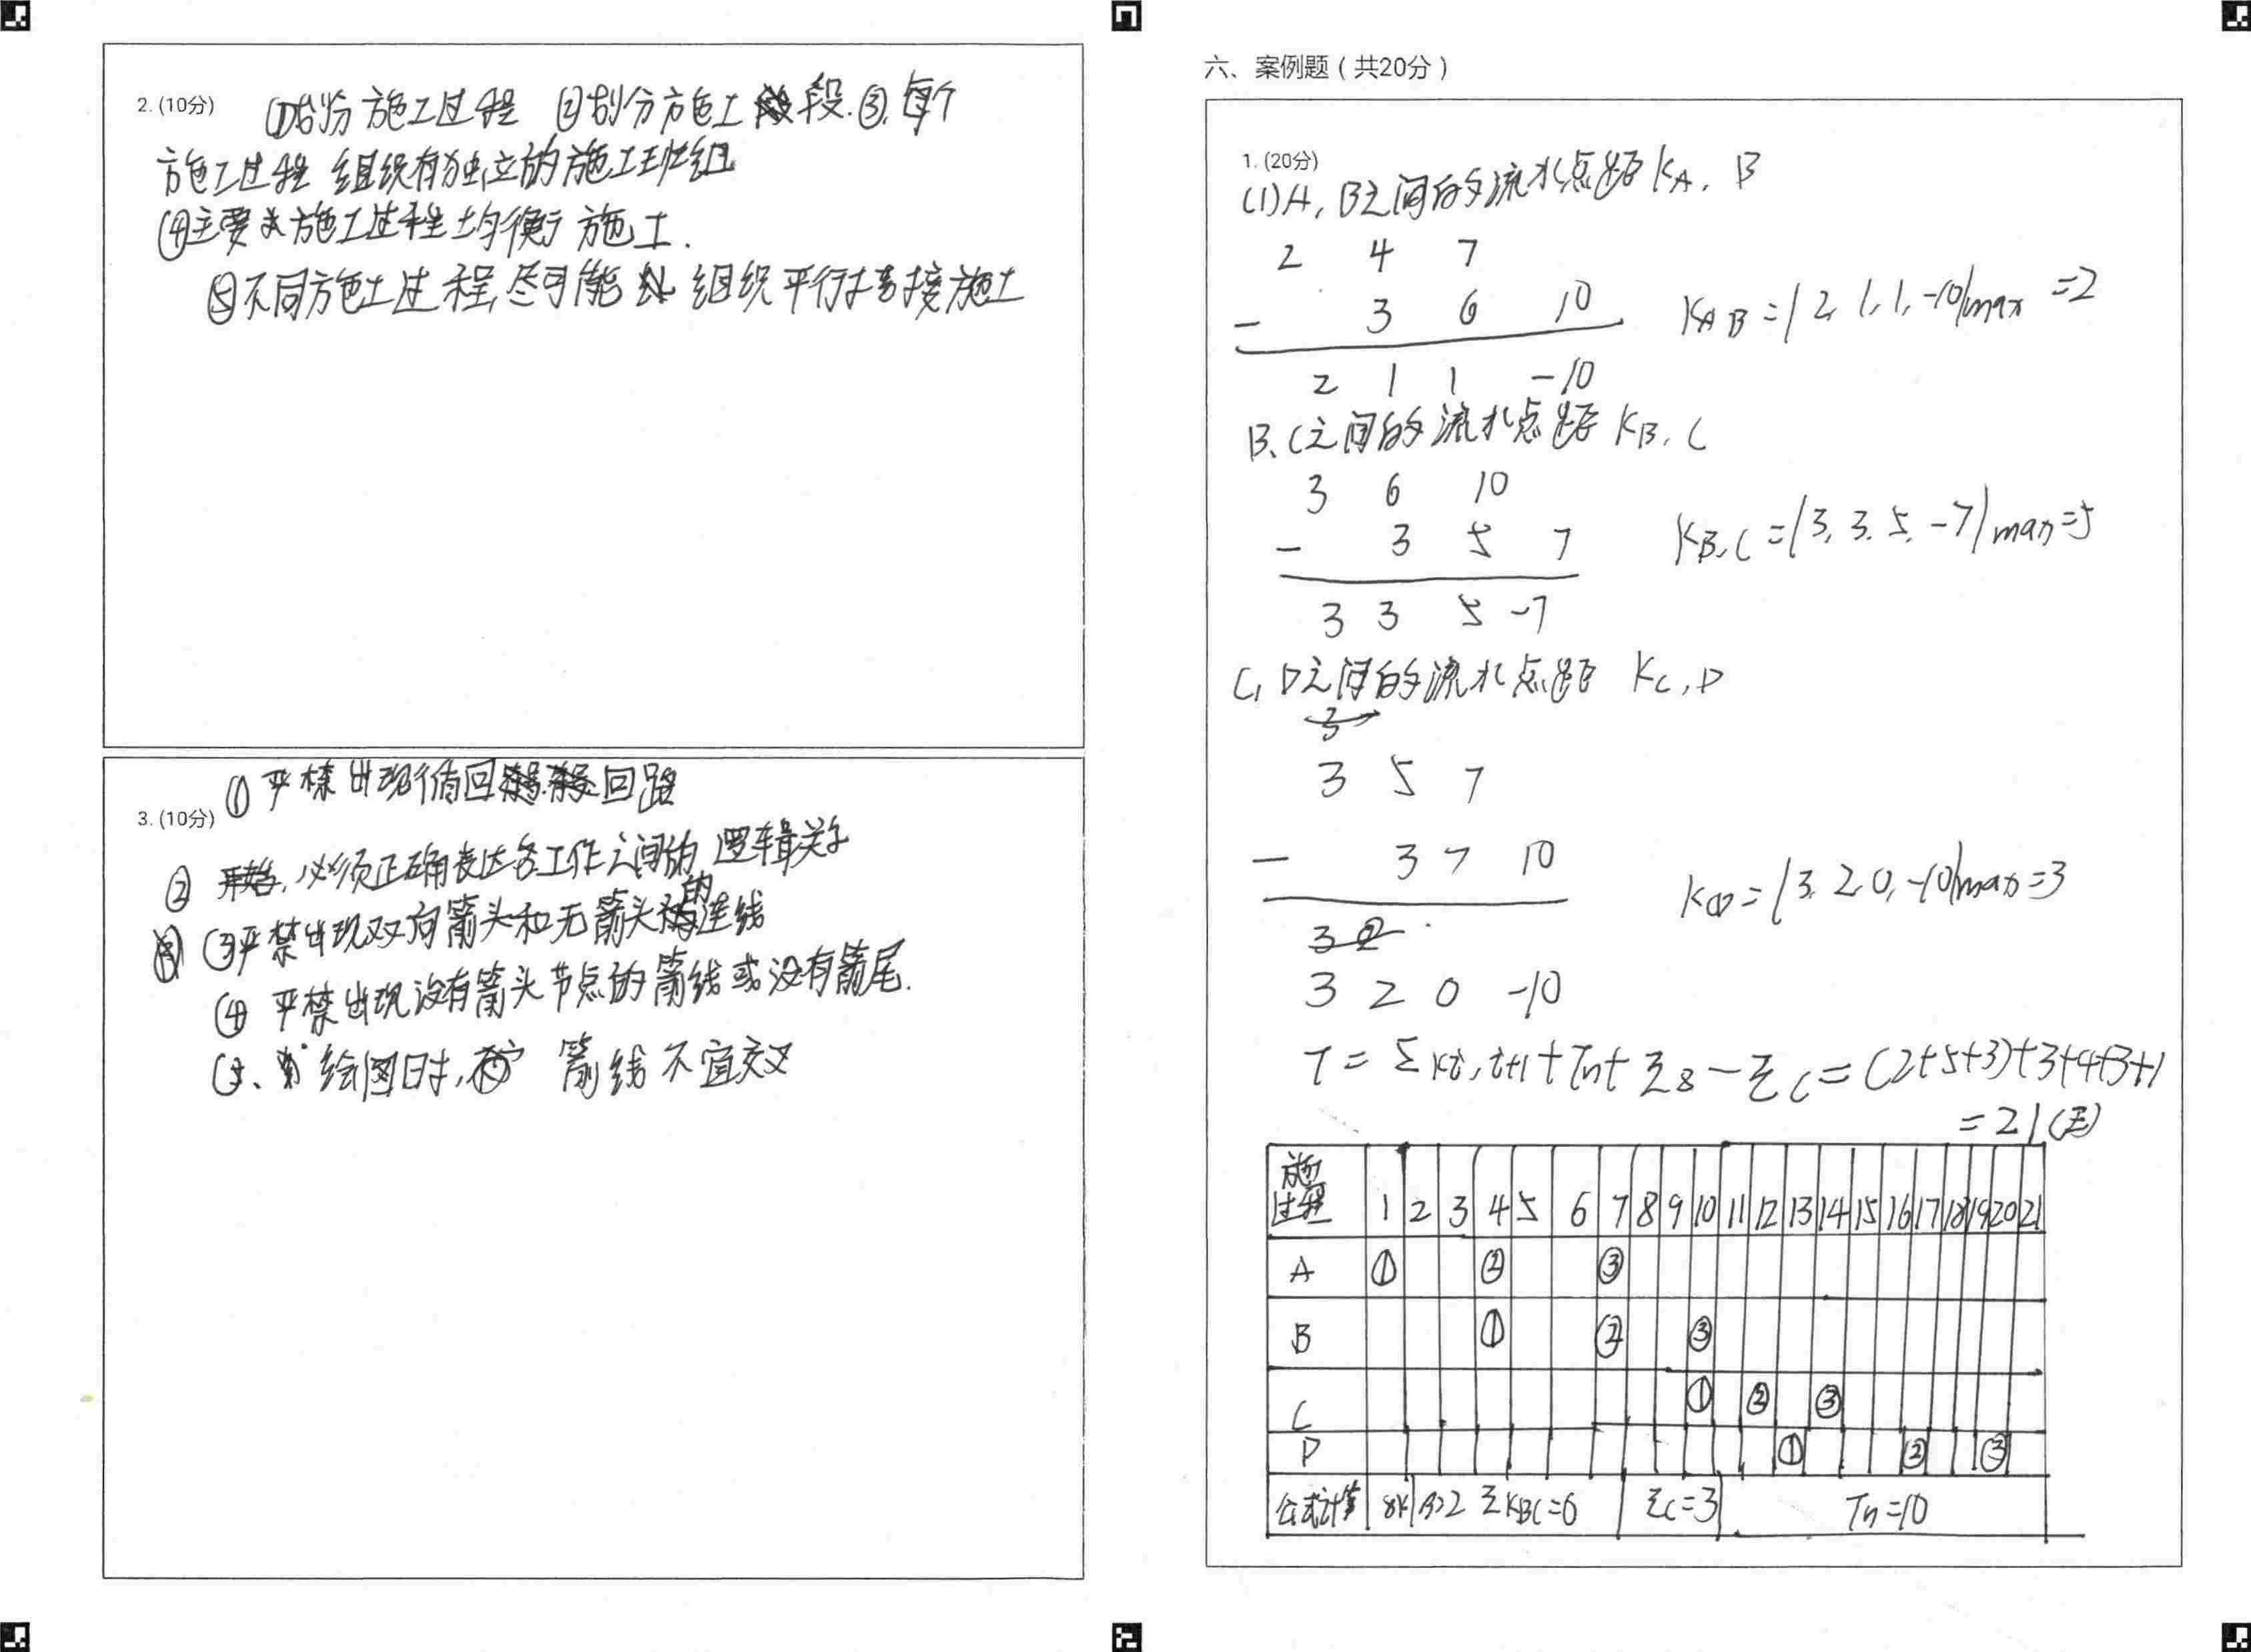 2. (10分) ①划分施工过程 ②划分施工段.③.每个
施工过程 组织有独立的施工班组
④主要施工过程均衡施工.
⑤不同施工过程,尽可能组织平行搭接施工
① 严禁出现循回回路
3. (10分)
② 必须正确表达各工作之间的逻辑关系
③严禁出现双向箭头和无箭头的连线
④ 严禁出现没有箭头节点的箭线或没有箭尾.
绘图时, 箭线不宜交叉
六、案例题（共20分）
1. (20分)
(1)A, B之间的流水点距 KA, B
2 4 7
- 3 6 10
KAB=|2,1,1,-10|max =2
2 1 1 -10
B、C之间的流水点距 KB, C
3 6 10
- 3 5 7
KB,C=|3,3,5,-7|max=5
3 3 5 -7
C, D之间的流水点距 KC, D
3 5 7
- 3 7 10
KCD=|3,2,0,-10|max=3
3 2 0 -10
T=ΣKi,i+1+Tn+Σg-Σc=(2+5+3)+3+4+3+1
=21(天)
施工过程 1 2 3 4 5 6 7 8 9 10 11 12 13 14 15 16 17 18 19 20 21
A ① ② ③
B ① ② ③
C ① ② ③
D ① ② ③
公式计算 ΣKBC=6 Σc=3 Tn=10